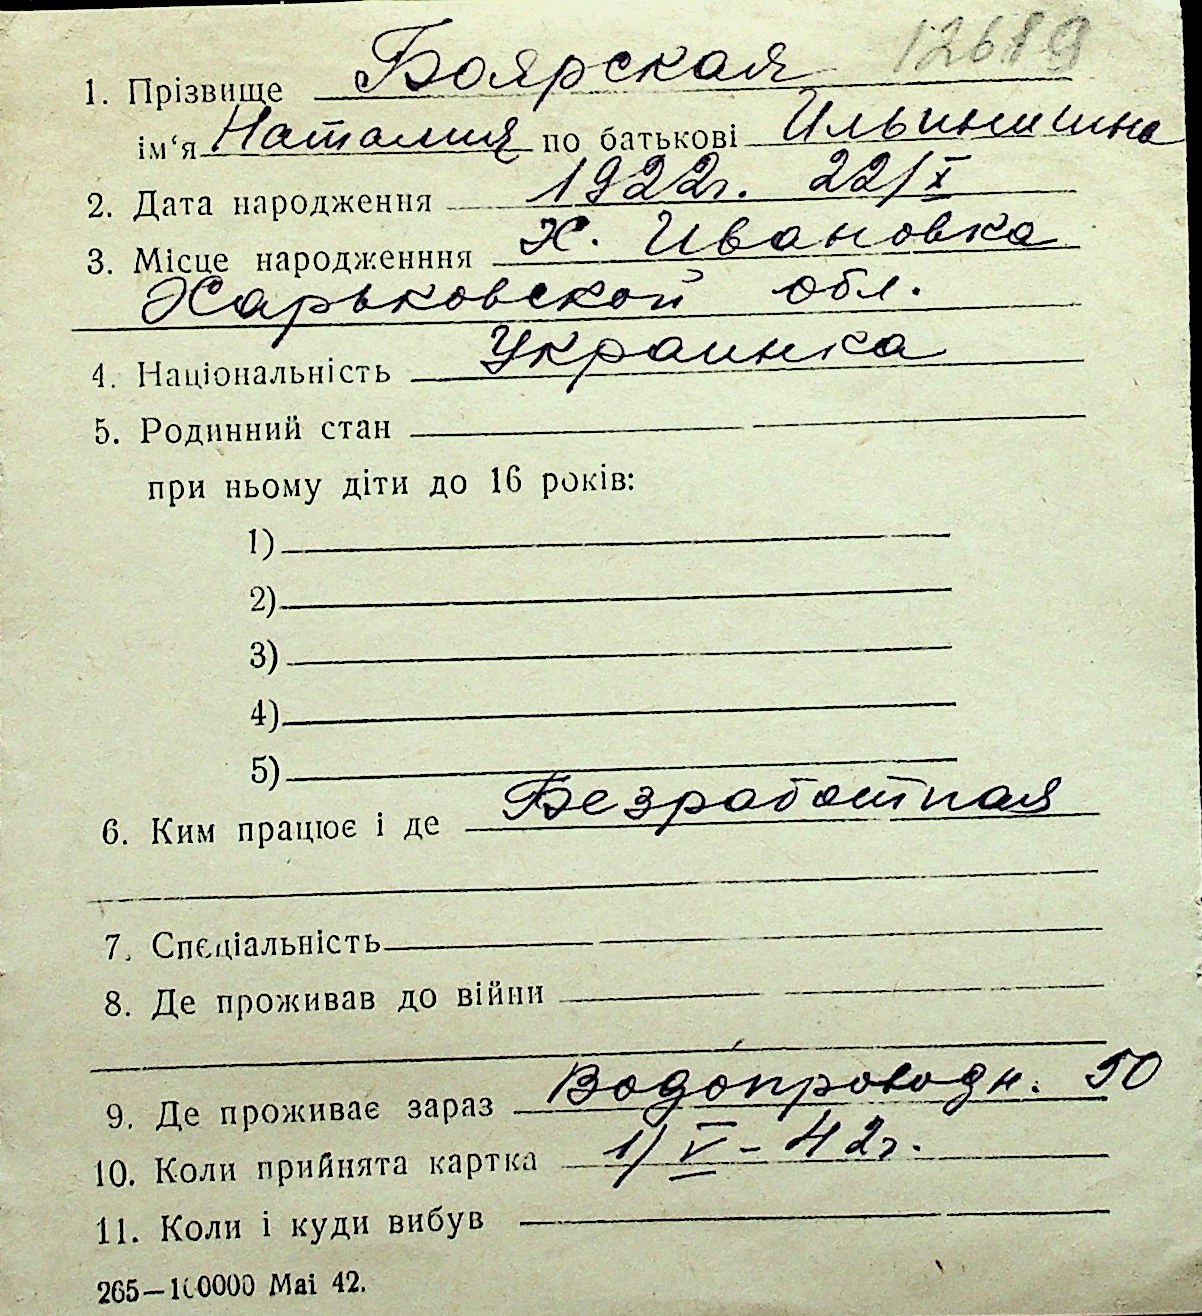 12689
1. Прізвище Боярская
ім‘я Наталия по батькові Ильинишна
2. Дата народження 1922г. 22/X
3. Місце народженння х. Ивановка
Харьковской обл.
4. Національність Украинка
5. Родинний стан
при ньому діти до 16 років:
1)
2)
3)
4)
5)
6. Ким працює і де Безработная
7. Спєціальність
8. Де проживав до війни
9. Де проживає зараз Водопроводн. 50
10. Коли прийнята картка 1/V - 42г.
11. Коли і куди вибув
265—100000 Mai 42.